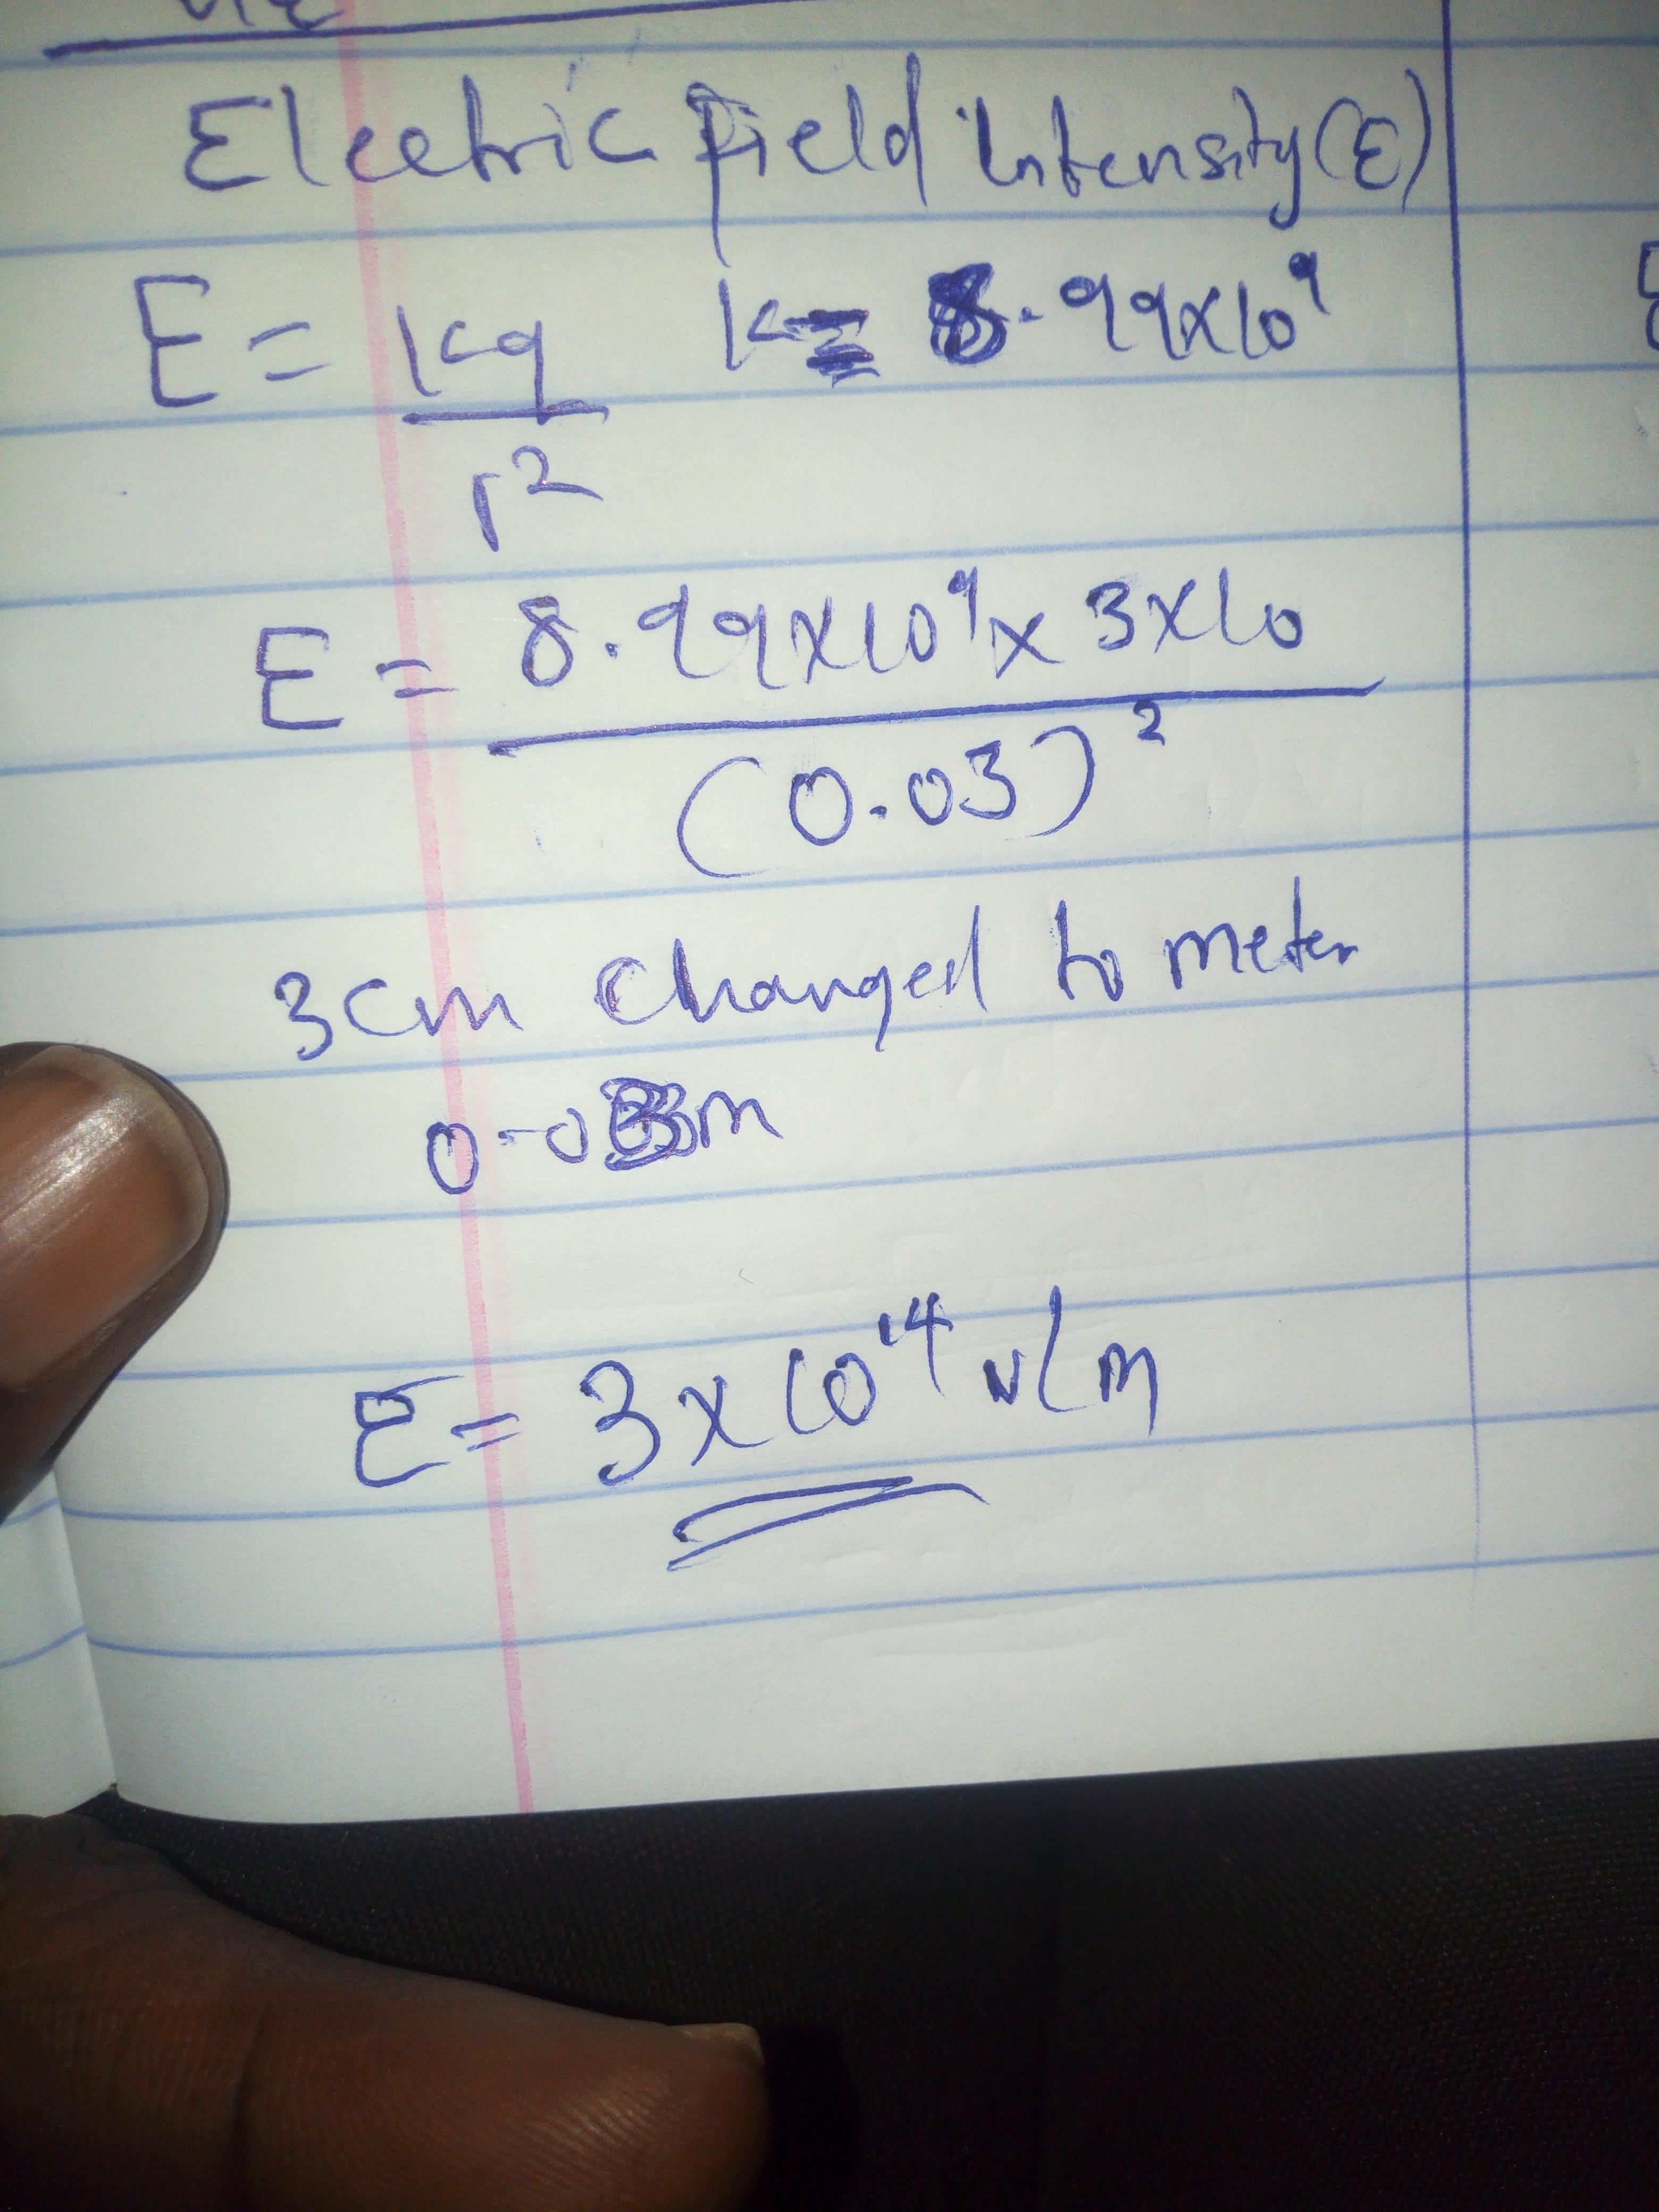 Electric field intensity (E)
E = kq/r² k = 8.99x10⁹
E = 8.99x10⁹ x 3x10
(0.03)²
3cm changed to meter
0.03m
E = 3x10¹⁴ v/m